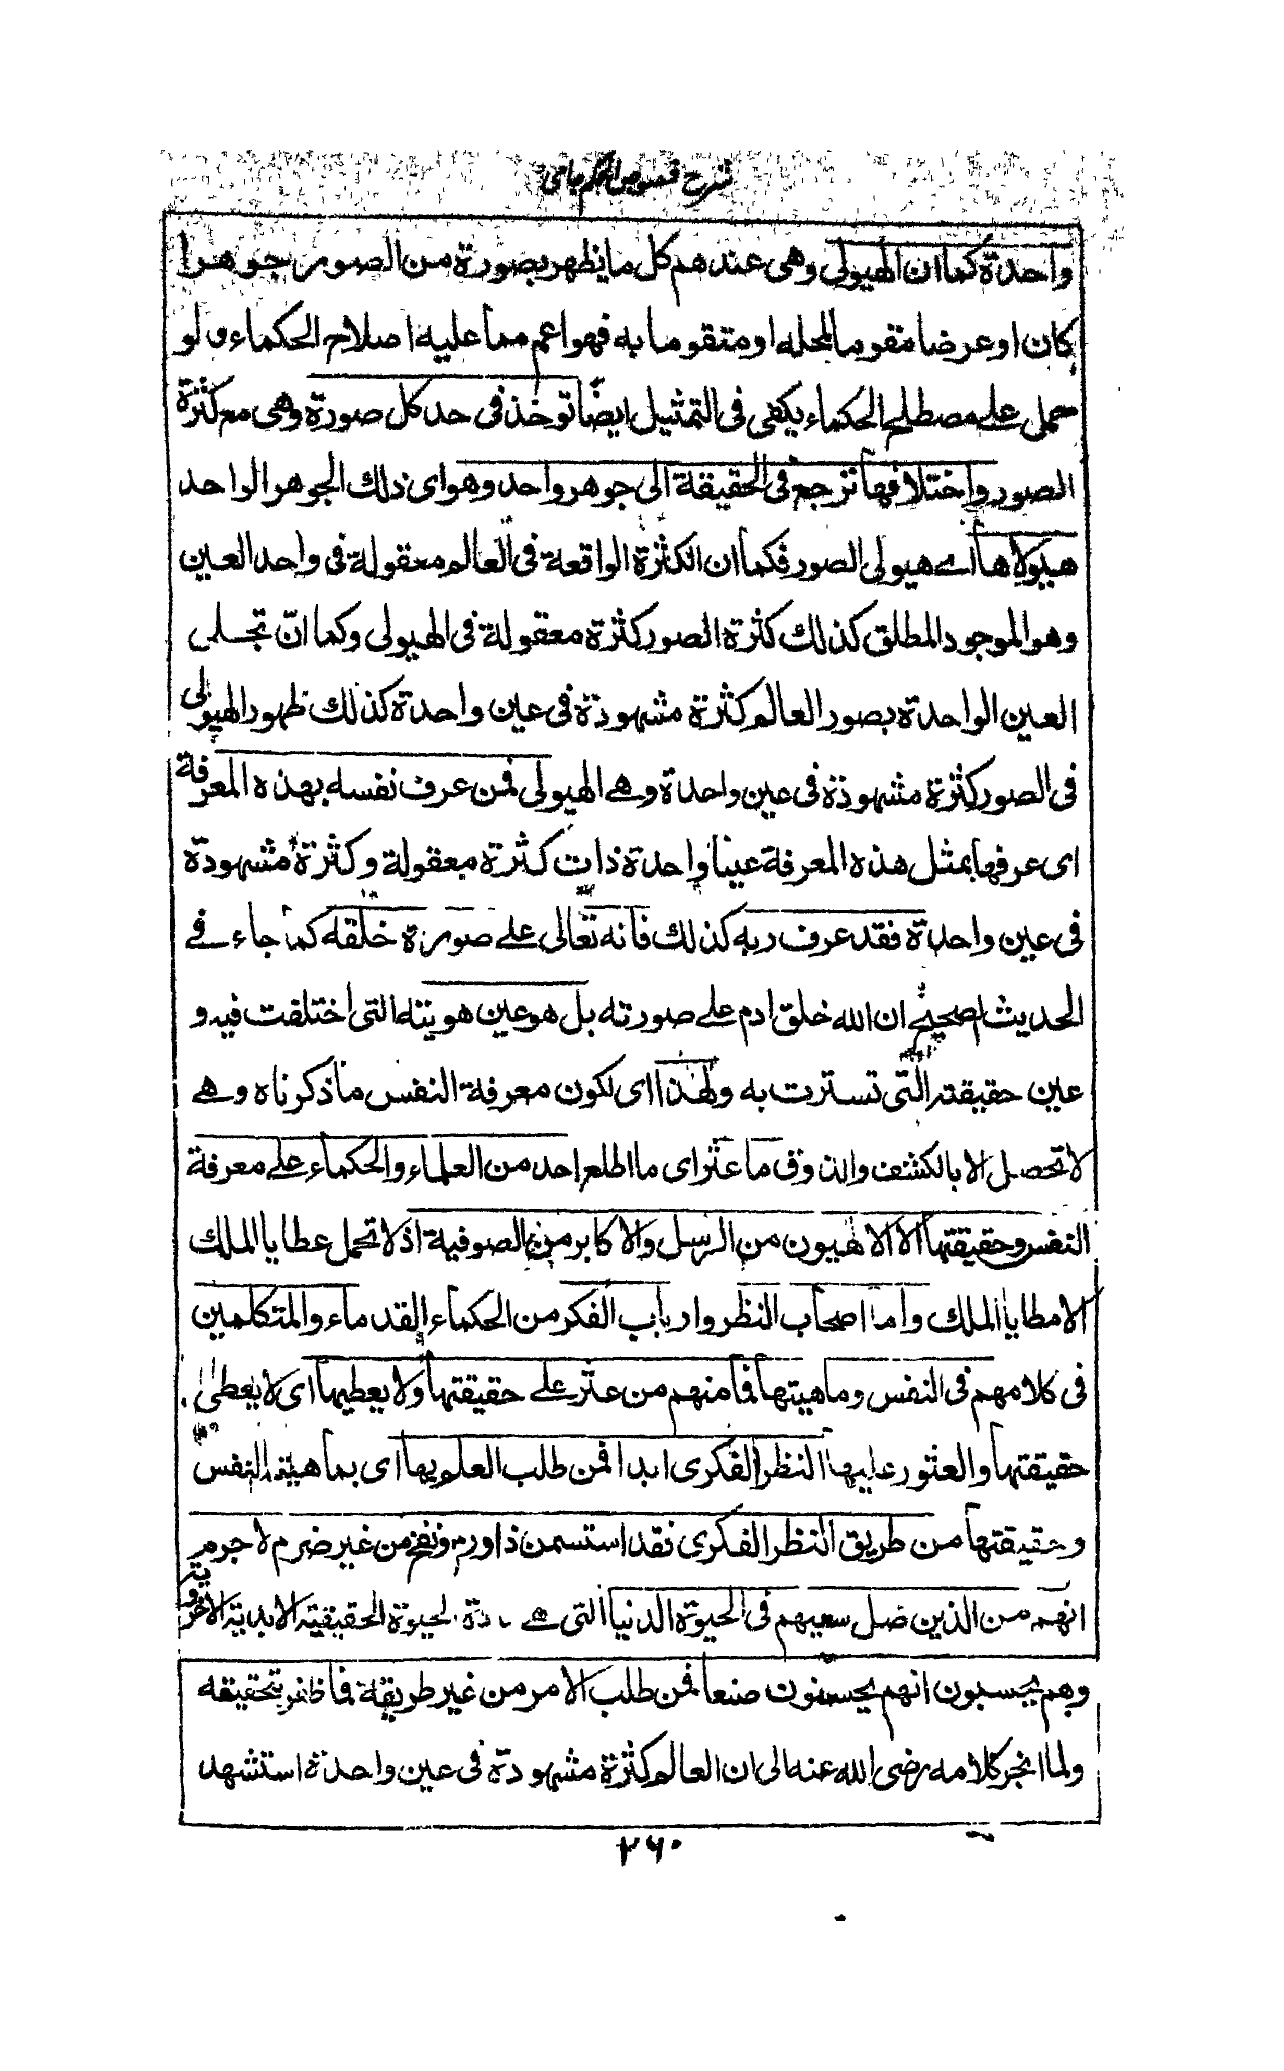 شرح فصوص الحكم جامى
واحدة كما ان الهيولى وهى عندهم كل ما يظهر بصورة من الصور جوهرا
كان او عرضا مقوما لمحله او متقوما به فهو اعم مما عليه اصلاح الحكماء ولو
حمل على مصطلح الحكماء يكفى فى التمثيل ايضا توخذ فى حد كل صورة وهى مع كثرة
الصور واختلافها ترجع فى الحقيقة الى جوهر واحد وهو اى ذلك الجوهر الواحد
هيولاها اے هيولى الصور فكما ان الكثرة الواقعة فى العالم معقولة فى واحد العين
وهو الموجود المطلق كذلك كثرة الصور كثرة معقولة فى الهيولى وكما انّ تجلى
العين الواحدة بصور العالم كثرة مشهودة فى عين واحدة كذلك ظهور الهيولى
فى الصور كثرة مشهودة فى عين واحدة وهے الهيولى فمن عرف نفسه بهذه المعرفة
اى عرفها بمثل هذه المعرفة عينا واحدة ذات كثرة معقولة وكثرة مشهودة
فى عين واحدة فقد عرف ربه كذلك فانه تعالى على صورة خلقه كما جاء فے
الحديث الصحيح ان الله خلق ادم على صورته بل هو عين هويته التى اختلفت فيه و
عين حقيقته التى تسترت به ولهذا اى لكون معرفة النفس ما ذكرناه وهے
لا تحصل الا بالكشف والذوق ما عثر اى ما اطلع احد من العلماء والحكماء على معرفة
النفس وحقيقتها الا الالهيون من الرسل والاكابر من الصوفية اذ لا تحمل عطايا الملك
الا مطايا الملك واما اصحاب النظر وارباب الفكر من الحكماء القدماء والمتكلمين
فى كلامهم فى النفس وماهيتها فما منهم من عثر على حقيقتها ولا يعطيها اى لا يعطى
حقيقتها والعثور عليها النظر الفكرى ابدا فمن طلب العلم بها اى بماهية النفس
وحقيقتها من طريق النظر الفكرى فقد استسمن ذا ورم ونفخ من غير ضرم لا جرم
انهم من الذين ضل سعيهم فى الحيوة الدنيا التى هے الحيوة الحقيقية الابدية الاخروية
وهم يحسبون انهم يحسنون صنعا فمن طلب الامر من غير طريقة فما ظفر بتحقيقه
ولما انجر كلامه رضى الله عنه الى ان العالم كثرة مشهودة فى عين واحدة استشهد
٢٦٠